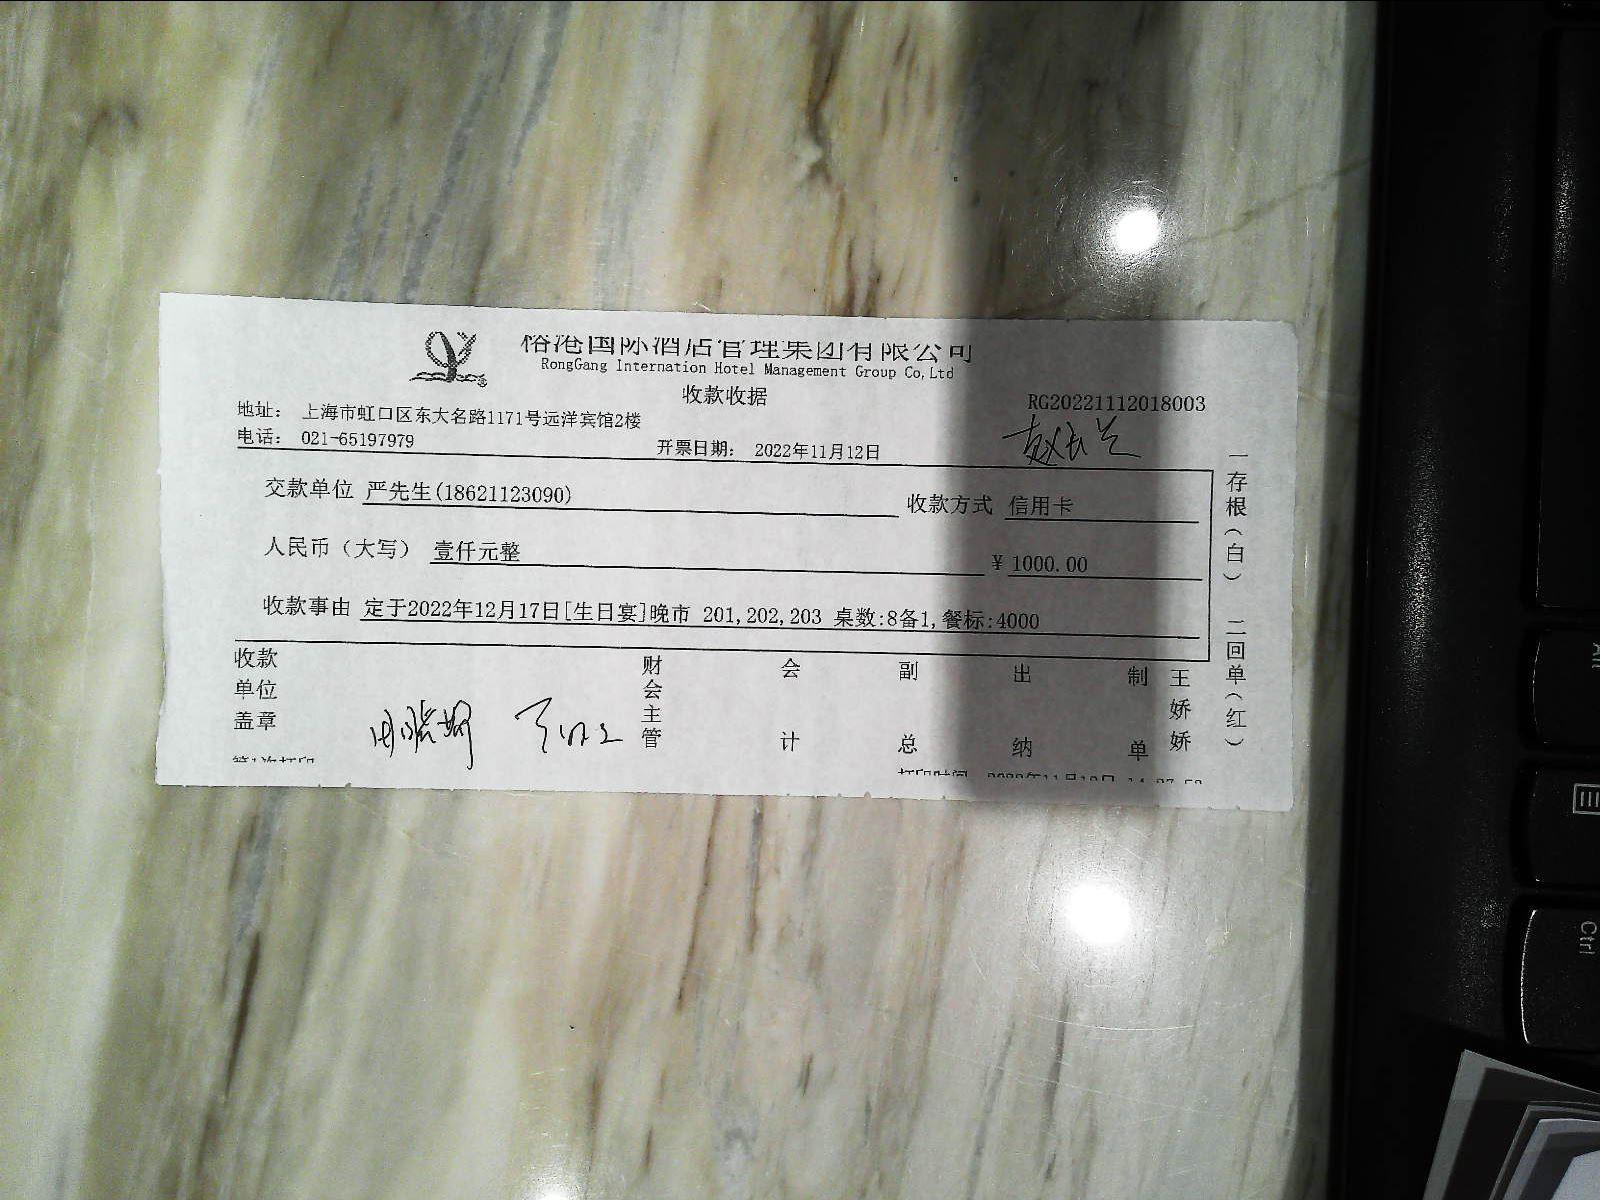 榕港国际酒店管理集团有限公司
RongGang Internation Hotel Management Group Co,Ltd
收款收据
地址： 上海市虹口区东大名路1171号远洋宾馆2楼
RG20221112018003
电话： 021-65197979
开票日期： 2022年11月12日
交款单位 严先生(18621123090)
收款方式 信用卡
人民币（大写） 壹仟元整
¥ 1000.00
收款事由 定于2022年12月17日[生日宴]晚市 201,202,203 桌数:8备1,餐标:4000
收款单位盖章
财会主管
会计
副总
出纳
制单
王娇娇
一存根（白） 二回单（红）
第1次打印
Ctrl